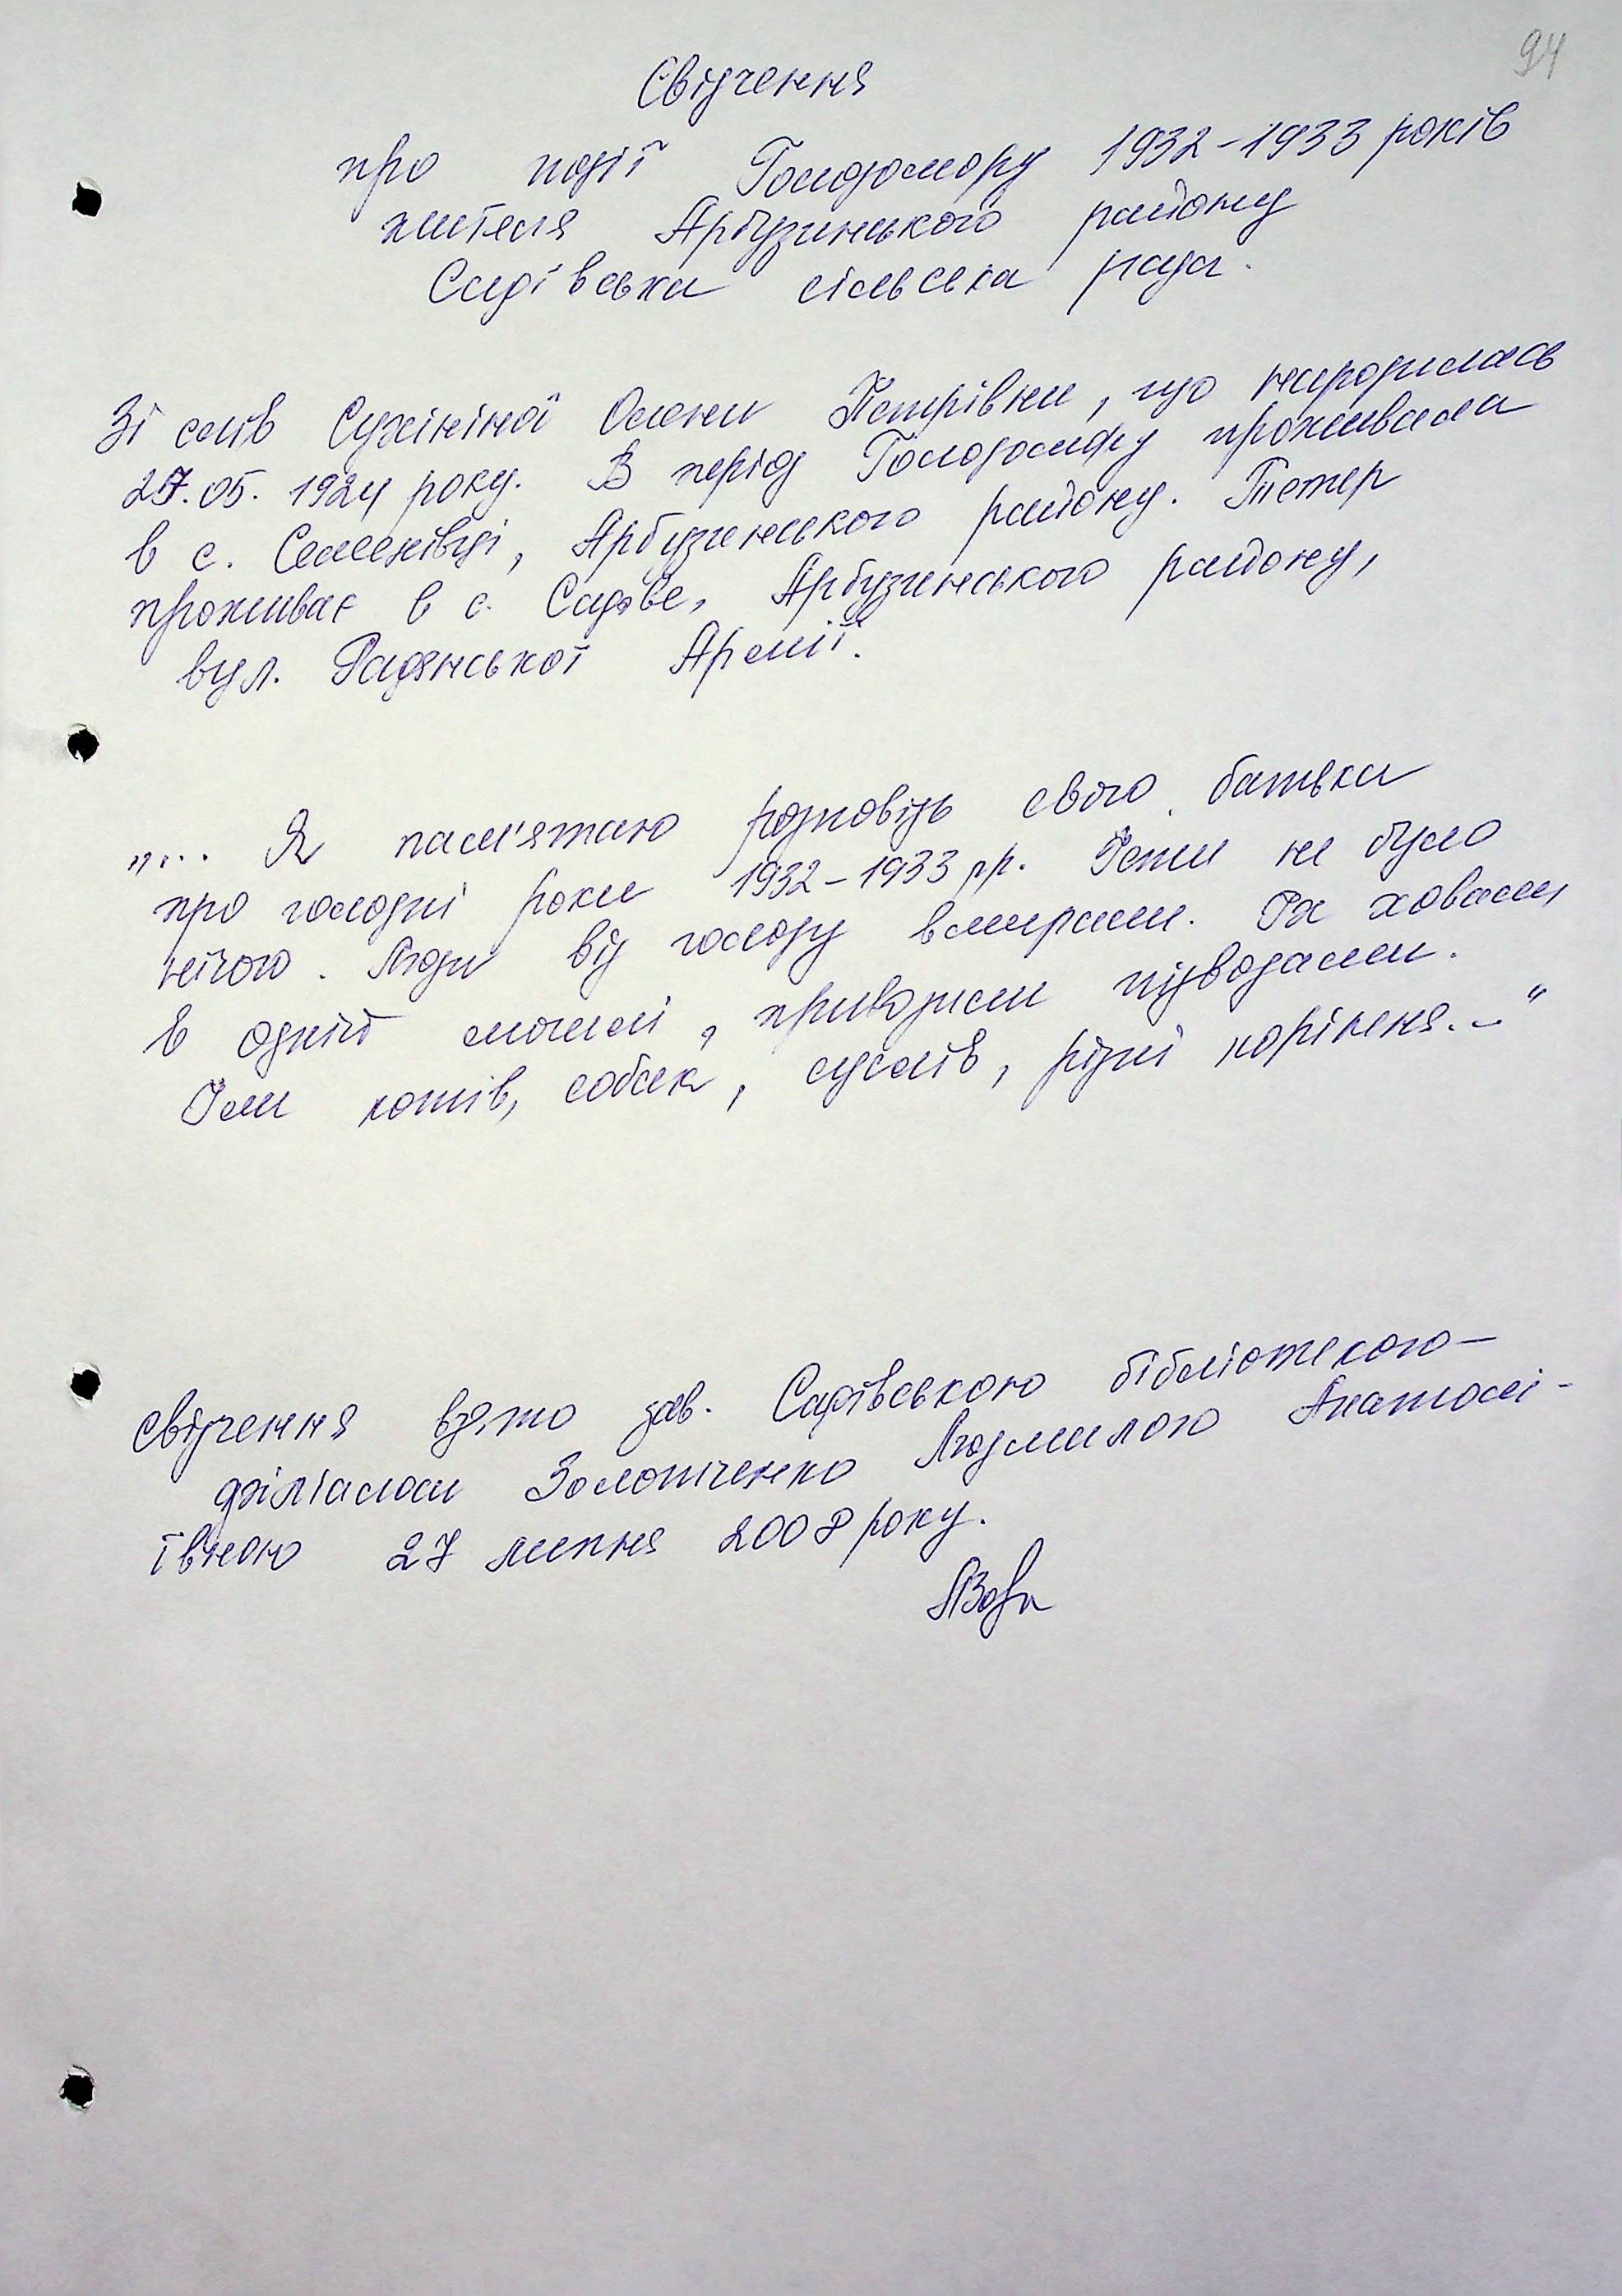 94
Свідчення
про події Голодомору 1932-1933 років
жителя Арбузинського району
Садівська сільська рада.
Зі слів Сухініної Олени Петрівни, що народилась
27.05.1924 року. В період Голодомору проживала
в с. Семенівці, Арбузинського району. Тепер
проживає в с. Садове, Арбузинського району,
вул. Радянської Армії.
„... Я пам'ятаю розповідь свого батька
про голодні роки 1932-1933 рр. Їсти не було
нічого. Люди від голоду вмирали. Їх ховали,
в одній могилі, привозили підводами.
Їли котів, собак, суслів, різні коріння..."
свідчення взято зав. Садівською бібліотекою-
філіалом Золотченко Людмилою Анатолі-
ївною 27 липня 2008 року.